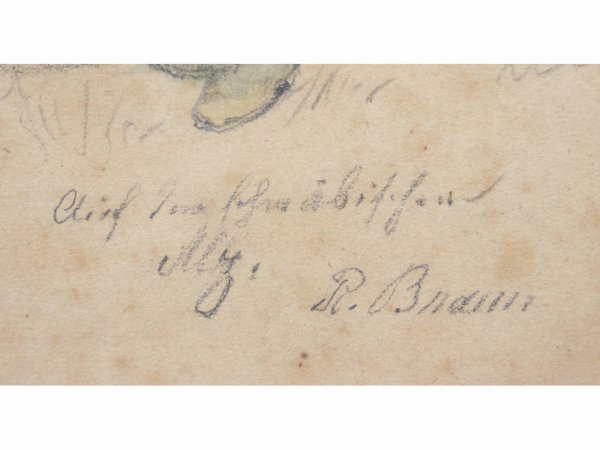 Auf der schwäbischen
Alb.
R. Braun